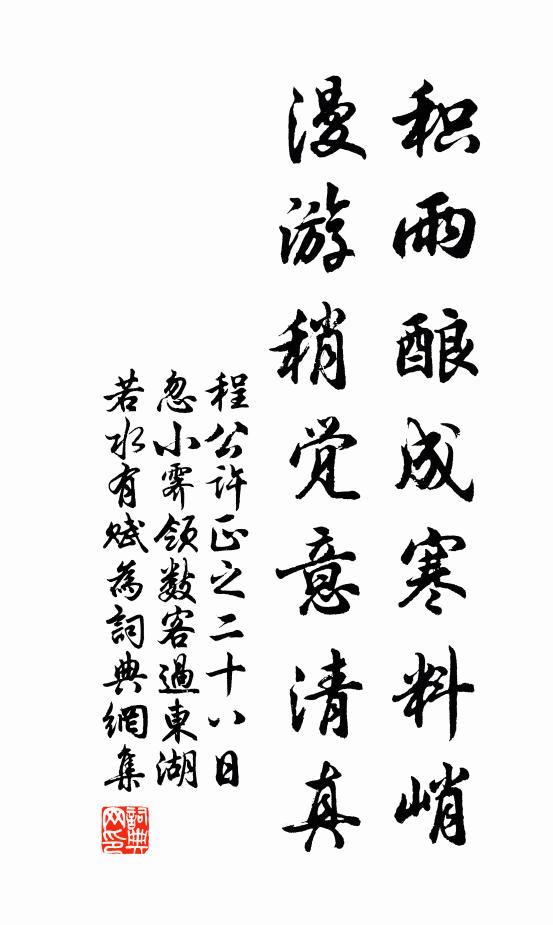 积雨酿成寒料峭
漫游稍觉意清真
程公许正之二十八日
忽小霁领数客过東湖
若水有赋為詞典網集
詞典网印